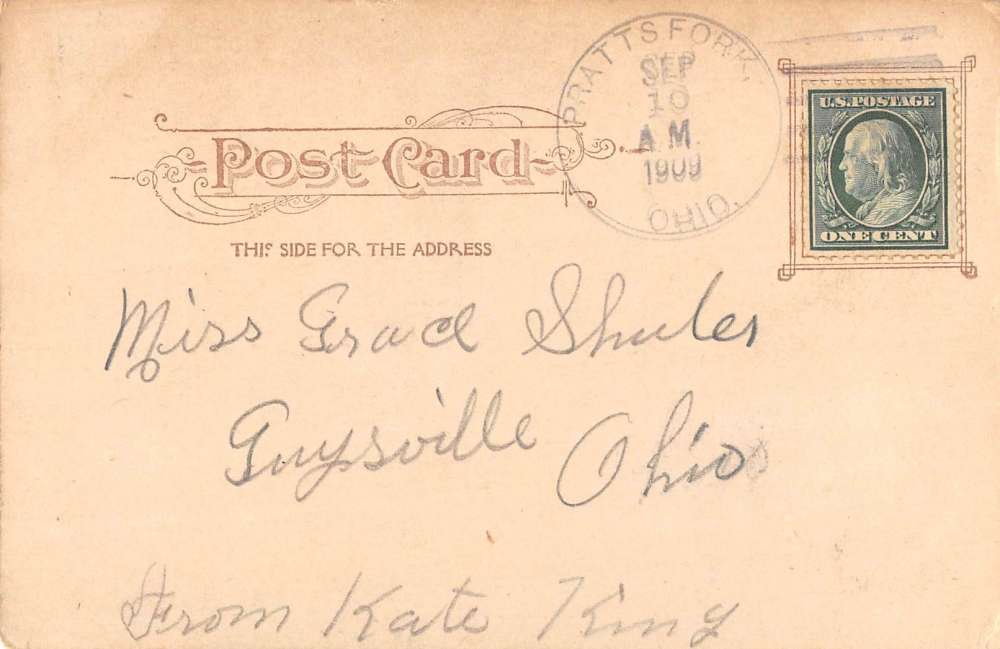 PRATTS FORK,
SEP
10
A.M.
1909
OHIO.
U.S. POSTAGE
ONE CENT
Post Card
THIS SIDE FOR THE ADDRESS
Miss Grace Shuler
Guysville Ohio
From Kate King